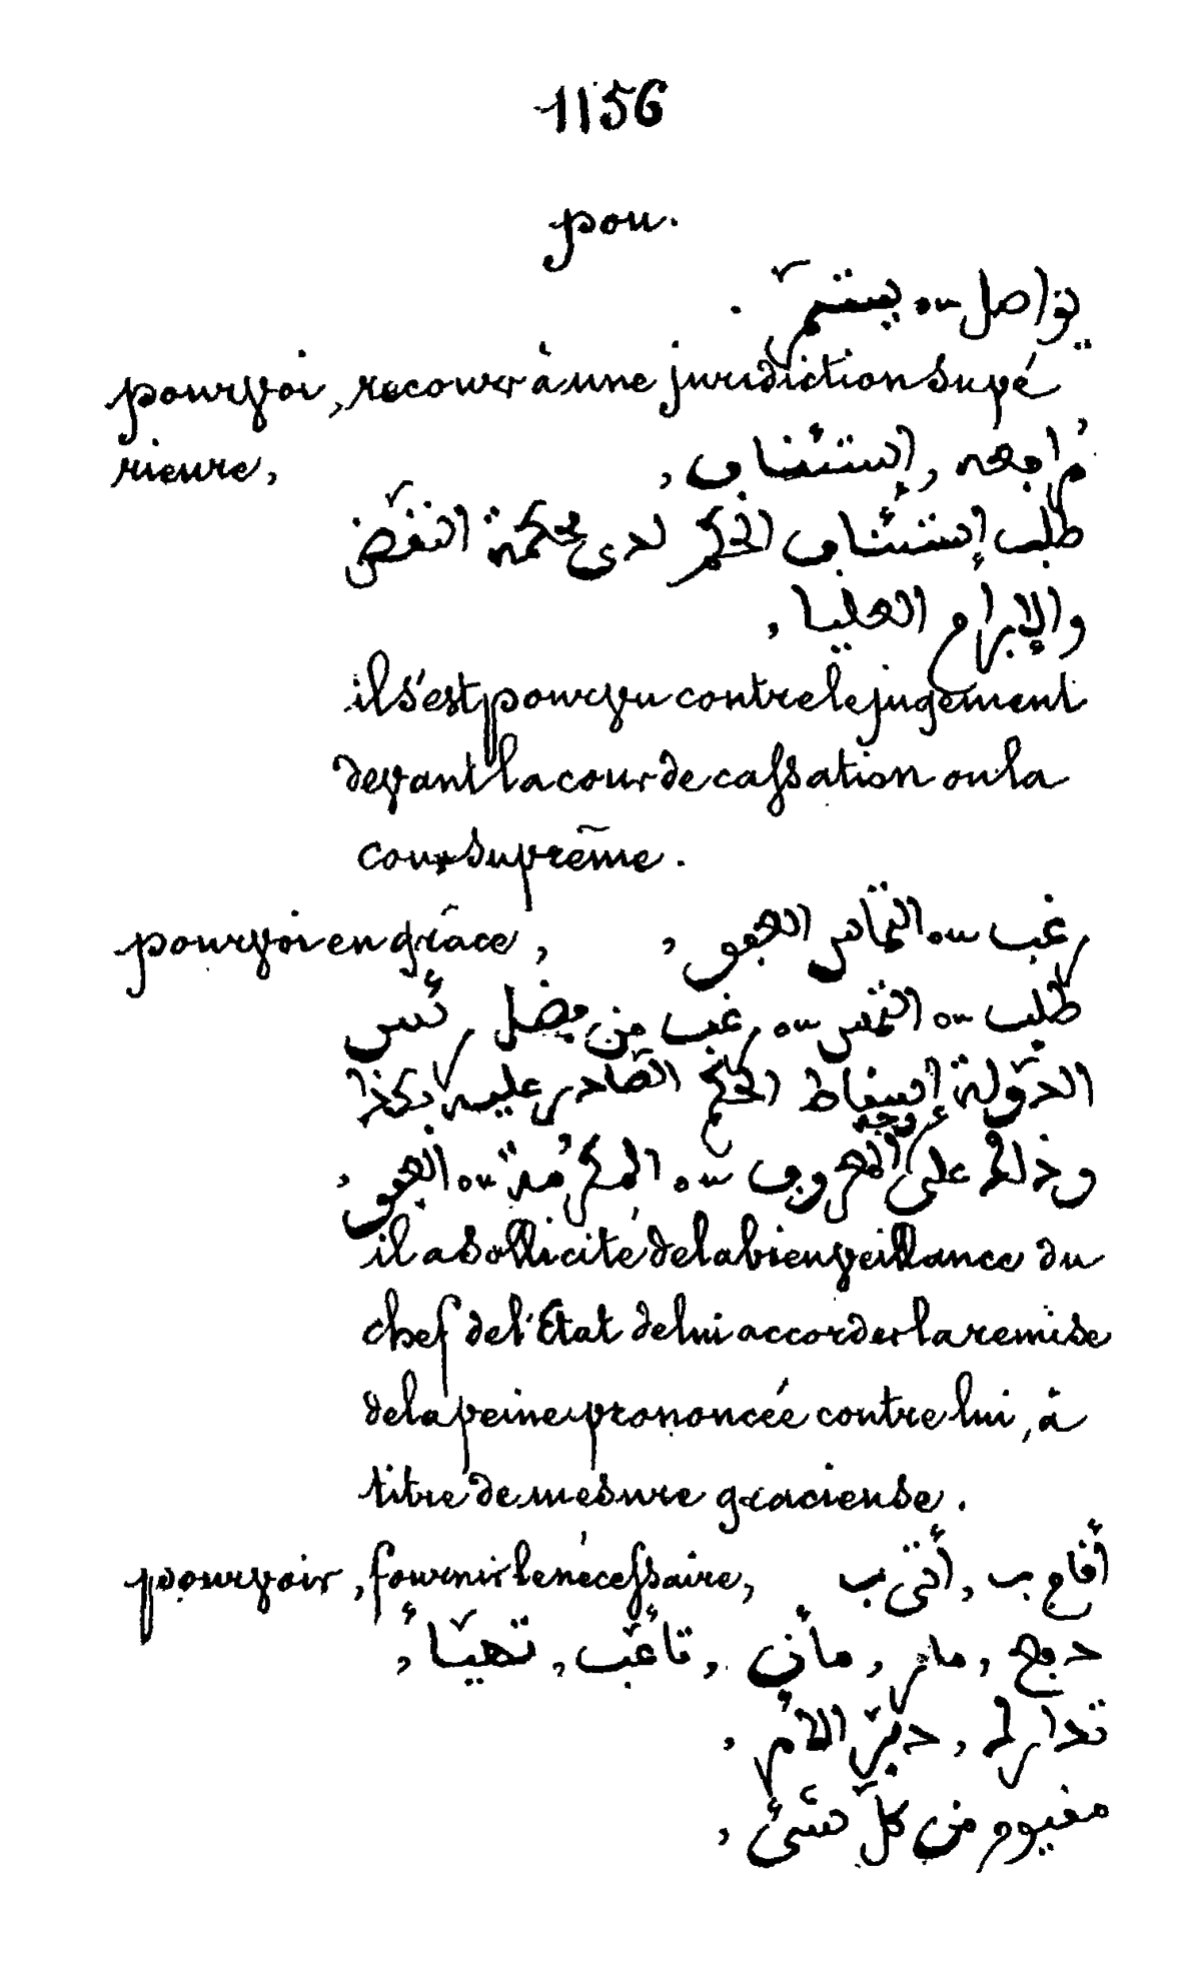 1156
pou.
يتواصل ou يستمرّ .
pourvoi, recours à une juridiction supé
rieure, مُراجعه, إستئناف,
طلب إستئناف الحكم لدى محكمة النقض
والإبرام العليا,
il s'est pourvu contre le jugement
devant la cour de cassation ou la
cour suprême.
pourvoi en grâce, رغب ou التماس العفو,
طلب ou التمس ou رغب من فضل رئيس
الدّولة إسقاط الحكم الصّادر عليه بكذا
وذلك على وجه المعروف ou المكرُمة ou العفو,
il a sollicité de la bienveillance du
chef de l'État de lui accorder la remise
de la peine prononcée contre lui, à
titre de mesure gracieuse.
pourvoir, fournir le nécessaire, أقام ب, أتى ب
دفع, مار, مأن, تأهّب, تهيّأ,
تدارك, دبّر الأمر,
من كلّ شئ,